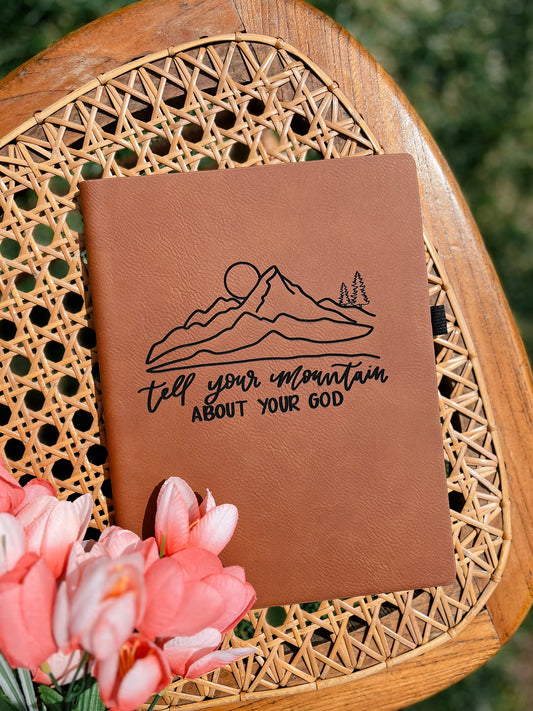 tell your mountain
ABOUT YOUR GOD